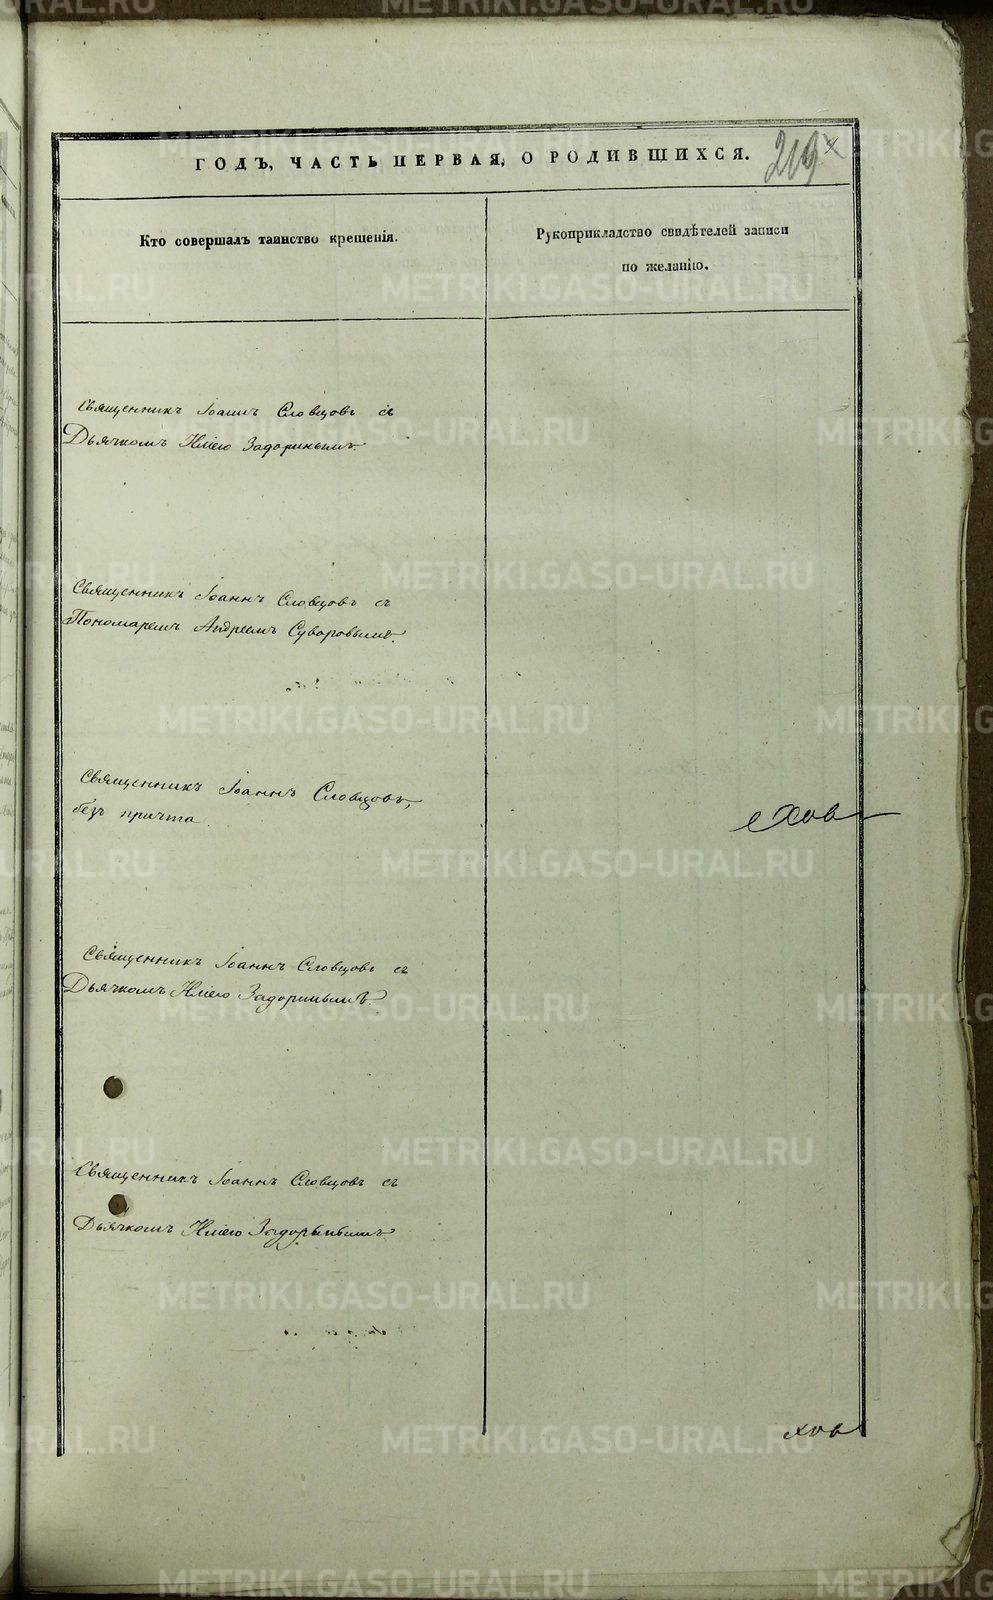 ГОДЪ, ЧАСТЬ ПЕРВАЯ, О РОДИВШИХСЯ.
219
Кто совершалъ таинство крещенія.
Рукоприкладство свидѣтелей записи
по желанію.
Священникъ Іоаннъ Словцовъ съ
Дьячкомъ Иліею Задоринымъ.
Священникъ Іоаннъ Словцовъ съ
Пономаремъ Андреемъ Суваровымъ.
Священникъ Іоаннъ Словцовъ,
безъ причта.
ехов
Священникъ Іоаннъ Словцовъ съ
Дьячкомъ Иліею Задоринымъ.
Священникъ Іоаннъ Словцовъ съ
Дьячкомъ Иліею Задоринымъ
ехов
METRIKI.GASO-URAL.RU